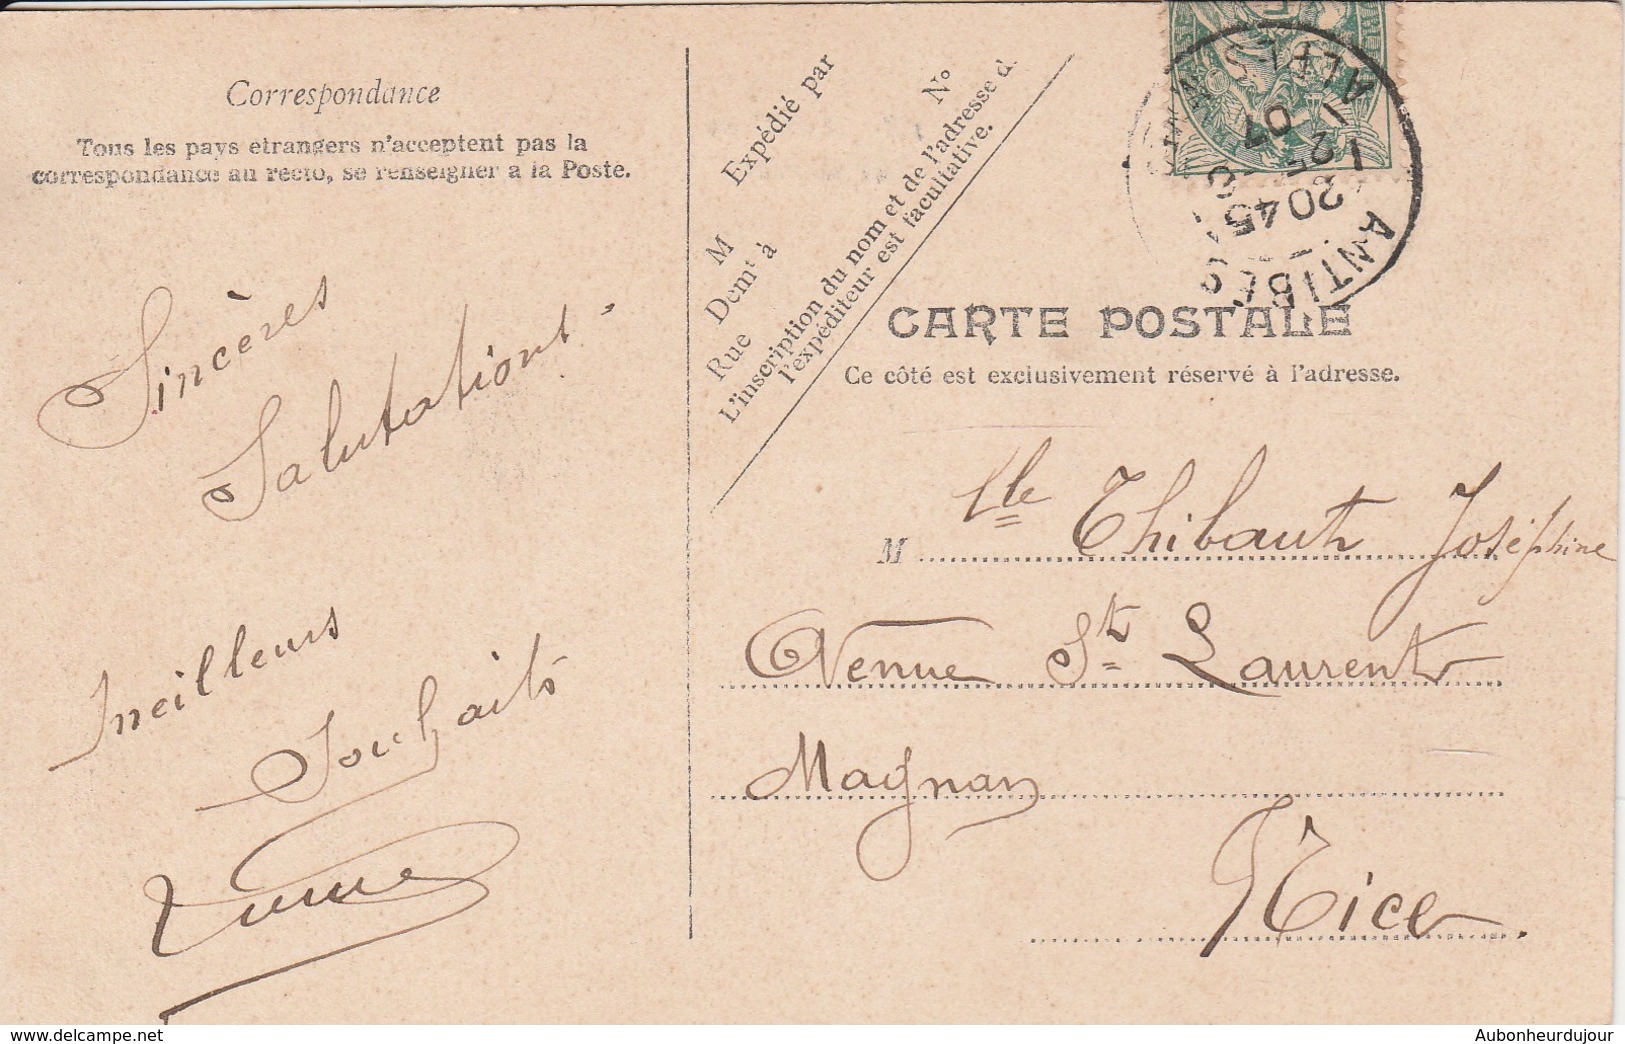 Correspondance
Tous les pays etrangers n'acceptent pas la
correspondance au recto, se renseigner a la Poste.
Sincères
Salutations
meilleurs
Souhaits
Expédié par
M
Demt à
Rue
No
L'inscription du nom et de l'adresse d
l'expéditeur est facultative.
ANTIBES
20 45
25
07
CARTE POSTALE
Ce côté est exclusivement réservé à l'adresse.
M lle Thibaut Joséphine
Avenue St Laurent
Magnan
Nice
www.delcampe.net
Aubonheurdujour